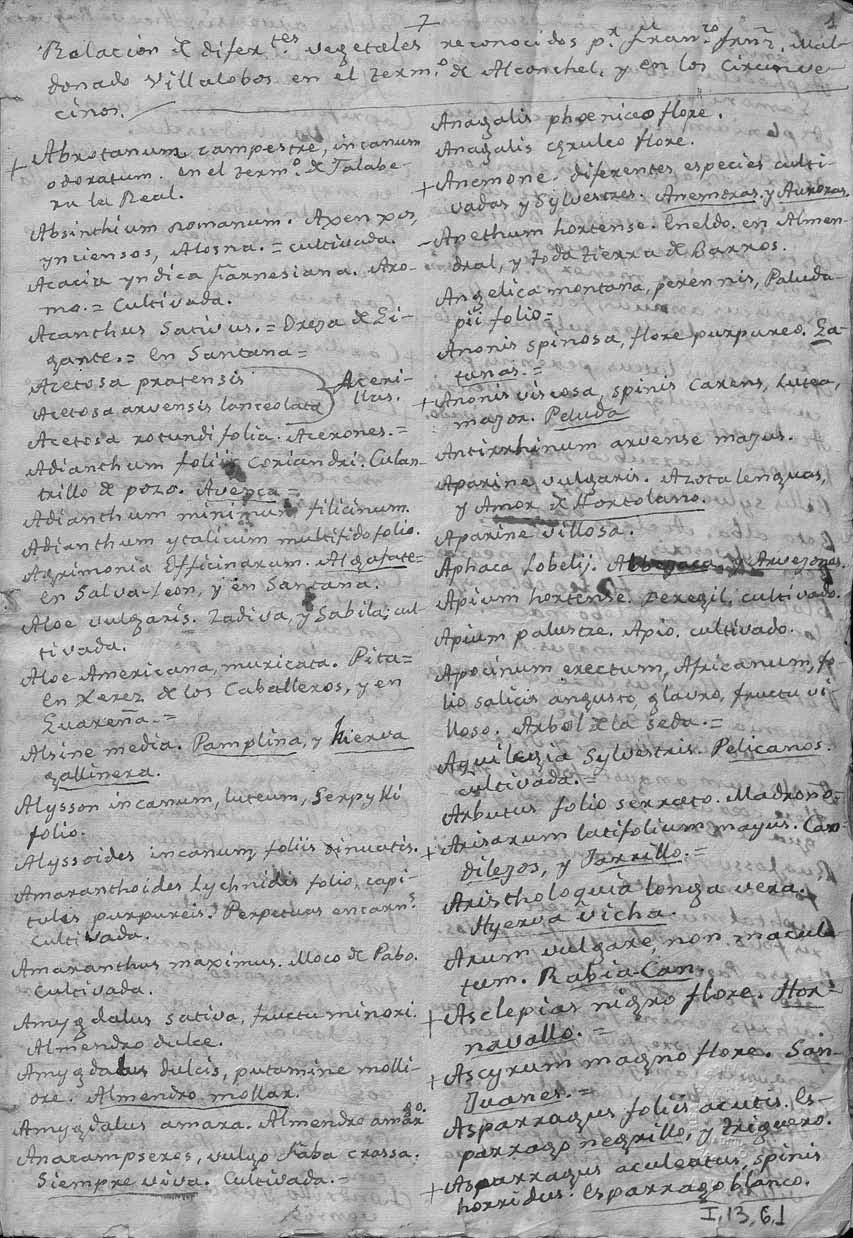 7
1
Relacion de difer.tes vegetales reconocidos p.r Fran.co Mal-
donado Villalobos en el term.o de Alconchel, y en los Circunve-
cinos.
+ Abrotanum campestre, incanum
odoratum. en el term.o de Talabe-
ra la Real.
Absinthium romanum. Axenxos,
ynciensos, Alosna. = cultivada.
Acacia yndica Farnesiana. Aro-
mo. = Cultivada.
Acanthus Sativus. = Oreja de Gi-
gante. = en Santana =
Acetosa pratensis
Acetosa arvensis lanceolata } Aceri-
llas.
Acetosa rotundifolia. Acerones. =
Adianthum foliis Coriandri. Culan-
trillo de pozo. Avenca =
Adianthum minimum filicinum.
Adianthum ytalicum multifido folio.
Agrimonia Efficinarum. Algafate =
en Salva-leon, y en Santana.
Aloe vulgaris. Zadiva, y Sabila; cul-
tivada.
Aloe Americana, muricata. Pita =
en Xerez de los Caballeros, y en
Guareña. =
Alsine media. Pamplina, y hierva
gallinera.
Alysson incanum, luteum, Serpylli
folio.
Alyssoides incanum, foliis sinuatis.
Amaranthoides Lychnidis folio, capi-
tulis purpureis. Perpetuas encarn.s
Cultivada.
Amaranthus maximus. Moco de Pabo.
Cultivada.
Amygdalus sativa, fructu minori.
Almendro dulce.
Amygdalus dulcis, putamine molli-
ore. Almendro mollar.
Amygdalus amara. Almendro amar
go.
Anacampseros, vulgo Faba crassa.
Siempre viva. Cultivada. =
Anagalis phœniceo flore.
Anagalis cæruleo flore.
+ Anemone. diferentes especies culti-
vadas y Sylvestres. Anemoras y Auroras.
- Apethum hortense. Eneldo. en Almen-
dral, y toda tierra de Barros.
Angelica montana, perennis, Paluda-
pii folio =
Anonis spinosa, flore purpureo. Ga-
tunas. =
+ Anonis viscosa, spinis carens, lutea,
major. Peluda
Antirrhinum arvense majus.
Aparine vulgaris. Azota lenguas,
y Amor de Hortolano.
Aparine villosa.
Aphaca Lobelij. y Arvejones.
Apium hortense. Peregil, cultivado.
Apium palustre. Apio. cultivado.
Apocinum erectum, Africanum, fo-
lio salicis angusto, glauro, fructu vi-
lloso. Arbol de la seda. =
Aquilegia Sylvestris. Pelicanos.
Cultivada. =
Arbutus folio serrato. Madroño =
+ Arisarum latifolium majus. Can-
dilejos, y Jarrillo. =
Aristholoquia longa vera.
Hyerva vicha.
Arum vulgare, non macula-
tum. Rabia-Can.
+ Asclepias nigro flore. Hor-
navallo. =
+ Ascyrum magno flore. San-
Juanes. =
Asparragus foliis acutis. Es-
parrago negrillo, y triguero.
+ Asparragus aculeatus, spinis
horridus. Esparrago blanco.
I, 13, 6, 1